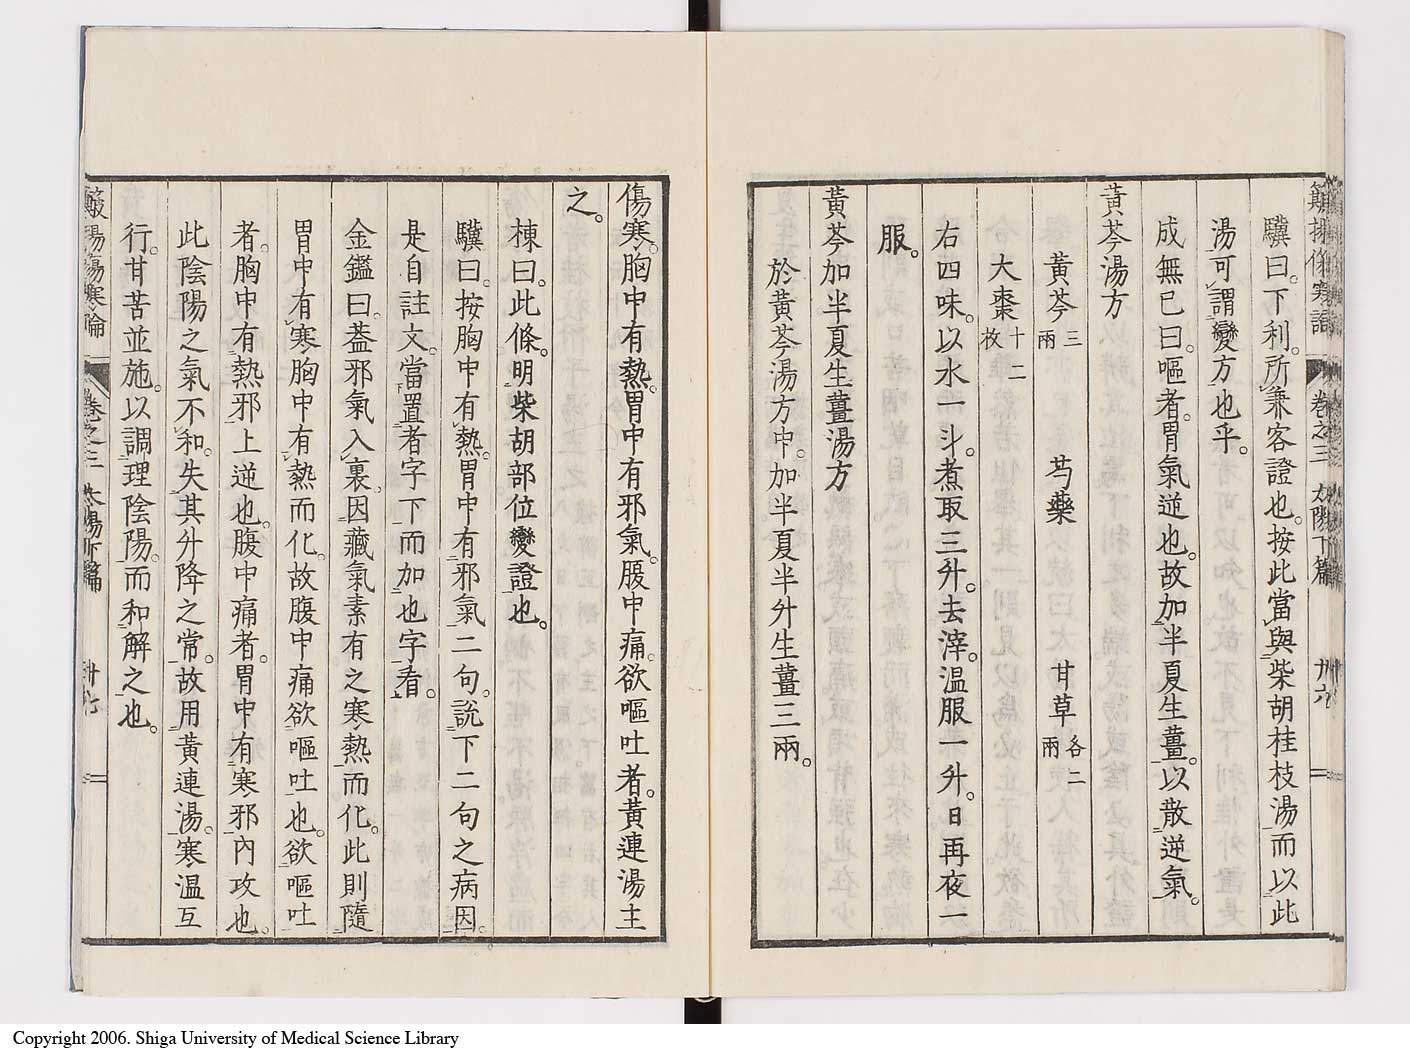 驥曰。下利。所兼客證也。按此當與柴胡桂枝湯而以此
湯可謂變方也乎。
成無已曰。嘔者。胃氣逆也。故加半夏生薑。以散逆氣。
黃芩湯方
黃芩三兩 芍藥 甘草各二兩
大棗十二枚
右四味。以水一斗。煮取三升。去滓。温服一升。日再夜一
服。
黃芩加半夏生薑湯方
於黃芩湯方中。加半夏半升生薑三兩。
卷之三 太陽下篇 卅六
傷寒。胸中有熱。胃中有邪氣。腹中痛。欲嘔吐者。黃連湯主
之。
棟曰。此條。明柴胡部位變證也。
驥曰。按胸中有熱。胃中有邪氣二句。說下二句之病因。
是自註文。當置者字下而加也字看。
金鑑曰。葢邪氣入裏。因藏氣素有之寒熱而化。此則隨
胃中有寒胸中有熱而化。故腹中痛欲嘔吐也。欲嘔吐
者。胸中有熱邪上逆也。腹中痛者。胃中有寒邪內攻也。
此陰陽之氣不和。失其升降之常。故用黃連湯。寒温互
行。甘苦並施。以調理陰陽。而和解之也。
傷寒論 卷之三 太陽下篇
Copyright 2006. Shiga University of Medical Science Library